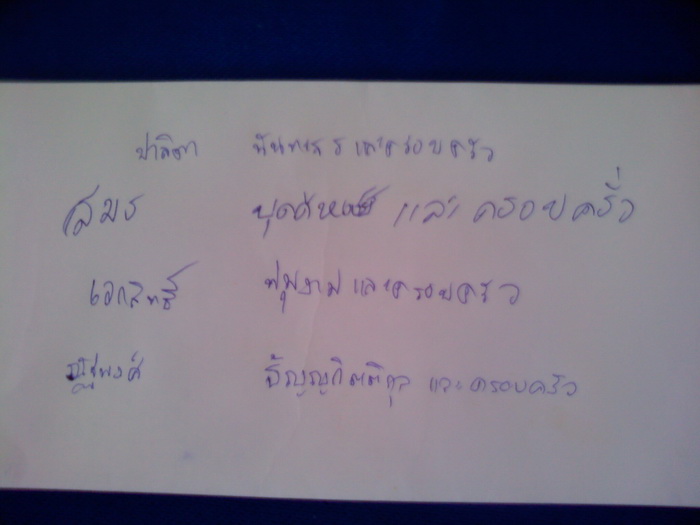 ปาลิตา และครอบครัว
สมร และ ครอบครั่ว
เอกสิทธิ์ พุ่มงาม และครอบครัว
ณัฐพงศ์ ธัญญกิตติกุล และครอบครัว